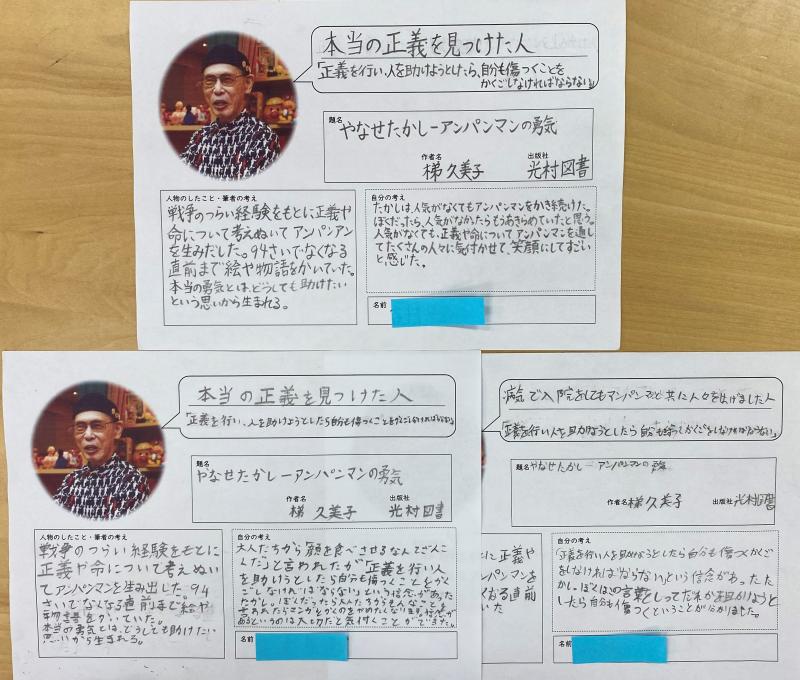 本当の正義を見つけた人
「正義を行い、人を助けようとしたら、自分も傷つくことを
かくごしなければならない。」
題名
やなせたかし―アンパンマンの勇気
作者名
梯 久美子
出版社
光村図書
人物のしたこと・筆者の考え
戦争のつらい経験をもとに正義や
命について考えぬいて アンパンアン
を生みだした。94さいでなくなる
直前まで絵や物語をかいていた。
本当の勇気とは、どうしても助けたい
という思いから生まれる。
自分の考え
たかしは、人気がなくてもアンパンマンをかき続けた。
ぼくだったら、人気がなかたらもうあきらめていたと思う。
人気がなくても、正義や命について アンパンマンを通し
てたくさんの人々に気付かせて、笑顔にしてすごい
と感じた。
名前
本当の正義を見つけた人
「正義を行い、人を助けようとしたら自分も傷つくことをかくごしなければならない」
題名
やなせたかし―アンパンマンの勇気
作者名
梯 久美子
出版社
光村図書
人物のしたこと・筆者の考え
戦争のつらい経験をもとに
正義や命について考えぬい
てアンパンマンを生み出した。94
さいでなくなる直前まで絵や
物語をかいていた。
本当の勇気とは、どうしても助けたい
思いから生まれる。
自分の考え
大人たちから「顔を食べさせるなんてざんこ
くだ」と言われたが「正義を行い人
を助けようとしたら自分も傷つくことをかく
ごしなければならない」という信念があった
たかし。ぼくだったら大人たちからそんなことを
せめられたらマンガをかくのをやめたくなります。
あるというのは大切だと気付くことができた。
名前
病気で入院をしてもアンパンマンと共に人々を助けました人
「正義を行い人を助けようとしたら自分も傷つくかくごをしなければならない」
題名
やなせたかし―アンパンマンの勇気
作者名
梯 久美子
出版社
光村図書
とに正義や
パンマンを
くなる直前
いた
自分の考え
「正義を行い人を助けようとしたら自分も傷つくかくご
をしなければならない」という信念があったた
かし。ぼくはこの言葉をしってだれかを助けようと
したら自分も傷つくということが分かりました。
名前